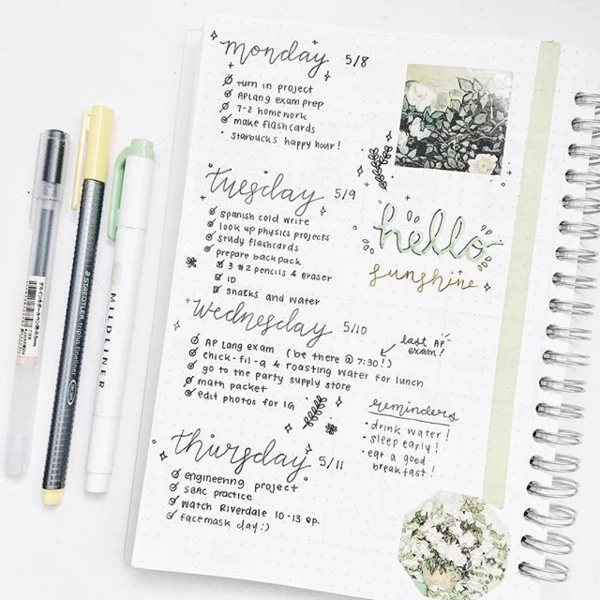 monday 5/8
turn in project
AP Lang exam prep
7-2 homework
make flashcards
Starbucks happy hour!
tuesday 5/9
spanish cold write
look up physics projects
study flashcards
prepare backpack
3 #2 pencils & eraser
ID
snacks and water
hello
sunshine
wednesday 5/10
AP Lang exam (be there @ 7:30!)
last AP
exam!
chick-fil-a & roasting water for lunch
go to the party supply store
math packet
edit photos for IG
reminders
drink water!
sleep early!
eat a good
breakfast!
thursday 5/11
engineering project
SBAC practice
watch Riverdale 10-13 ep.
facemask day :)
STAEDTLER triplus fineliner
MILDLINER